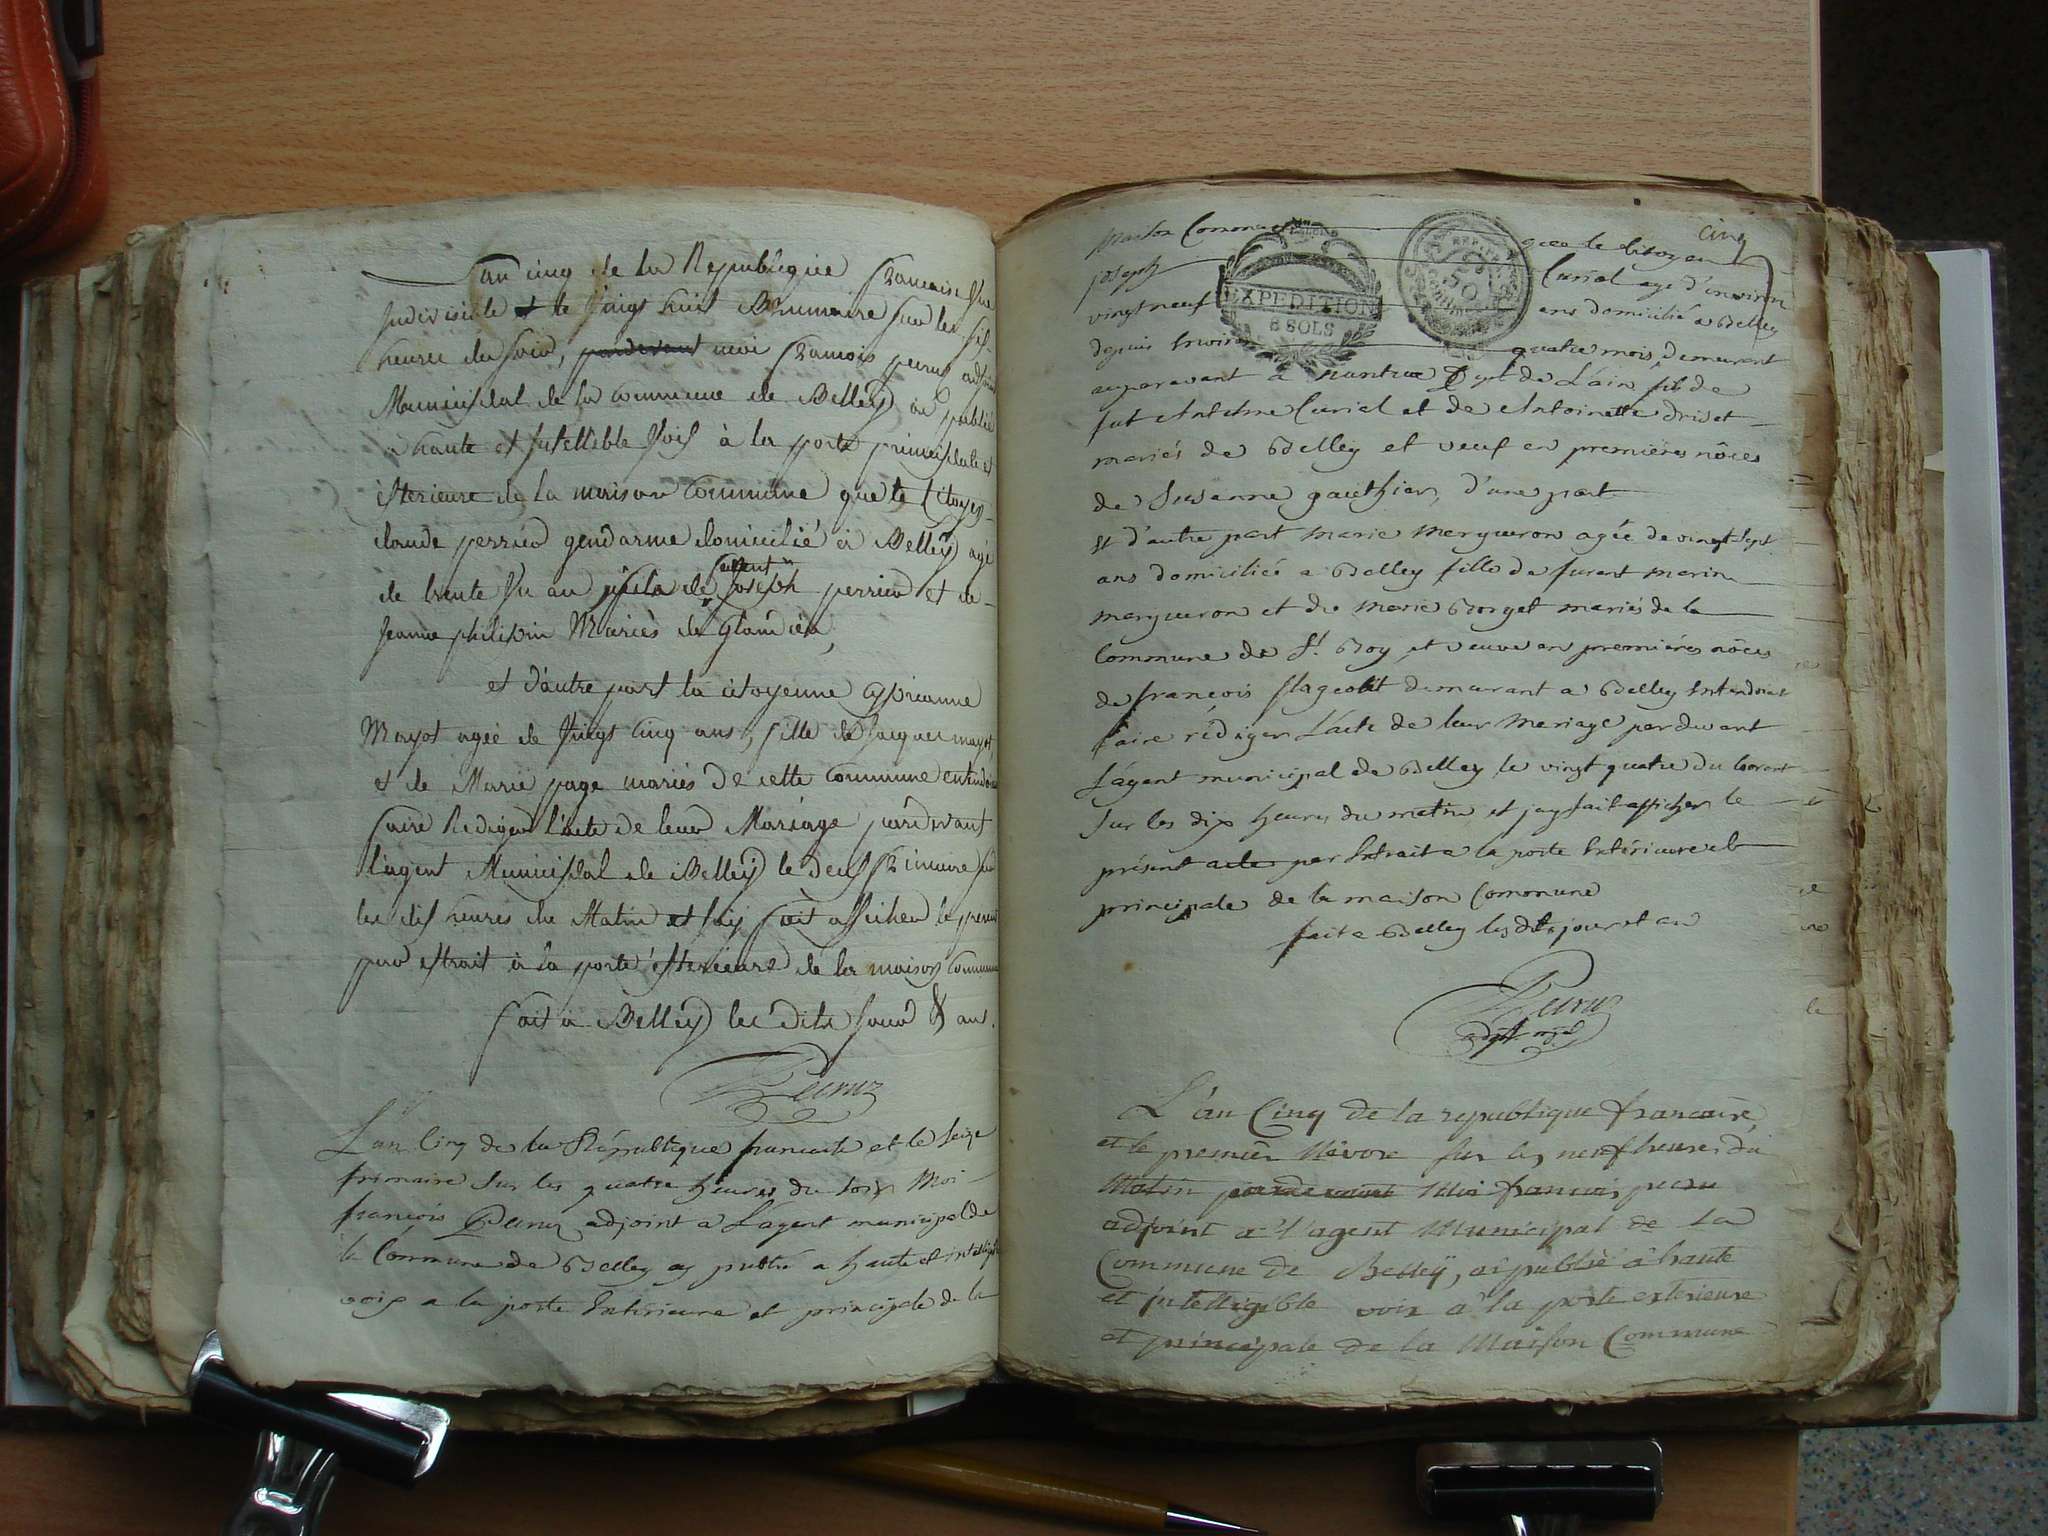 L'an cinq de la Republique francaise Une
Indivisible et le vingt huit Brumaire sur les six
heures du soir, pardevant moi francois peruz adjoint
Municipal de la commune de Belley ai publié
a haute et Intellible voix à la porte principalle et
exterieure de la maison commune que le Citoyen
claude perrier gendarme domicilié à Belley agé
de trente Un an fils de Joseph perrier et de
Jeanne philipin Mariés de
et d'autre part la citoyenne
Mayot agée de Vingt cinq ans, fille de Jacques mayot
et de Marie page mariés de cette commune entendoient
faire Rediger l'acte de leur Mariage pardevant
l'agent Municipal de Belley le deux frimaire sur
les dix heures du Matin et jai fait afficher le present
par extrait à la porte exterieure de la maison commune
fait à Belley les dits jour & ans.
Peruz
L'an Cinq de la République francaise et le seize
frimaire sur les quatre heures du soir Moi
françois Peruz adjoint a L'agent municipal de
la Commune de Belley ay publié a haute et intelligible
voix a la porte Extérieure et principale de la
cinq
Maison Commune que le Citoyen
joseph Curial age d'environ
vingt neuf ans domicilié a Belley
depuis Environ quatre mois, demeurant
auparavant a nantua Dpt de L'ain fils de
fut Antelme Curial et de Antoinette
mariés de Belley et veuf en premières nôces
de Susanne gauthier, d'une part
Et d'autre part Marie Mergueron agée de vingt sept
ans domiciliée a Belley fille de furent
mergueron et de Marie Borget mariés de la
Commune de St. Boy, et veuve en premières nôces
de françois flageollet demeurant a Belley Entendoient
faire rédiger L'acte de leur Mariage par devant
L'agent municipal de Belley le vingt quatre du Courant
sur les dix heures du matin et jay fait afficher le
présent acte par Extrait a la porte Extérieure et
principale de la maison Commune
fait a Belley les dits jour et an
Peruz
adjt. mpal
EXPEDITION
8 SOLS
50
L'an Cinq de la republique francaise,
et le premier Nivose sur les neuf heures du
Matin pardevant Moi francois peruz
adjoint a l'agent Municipal de la
Commune de Belleÿ, ai publié à haute
et intelligible voix a la porte exterieure
et principale de la Maison Commune